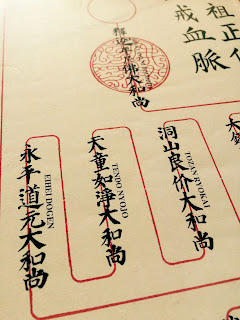 祖正
戒血脈
釋迦牟尼佛大和尚
洞山良价大和尚
TOZAN RYOKAI
天童如淨大和尚
TENDO NYOJO
永平道元大和尚
EIHEI DOGEN